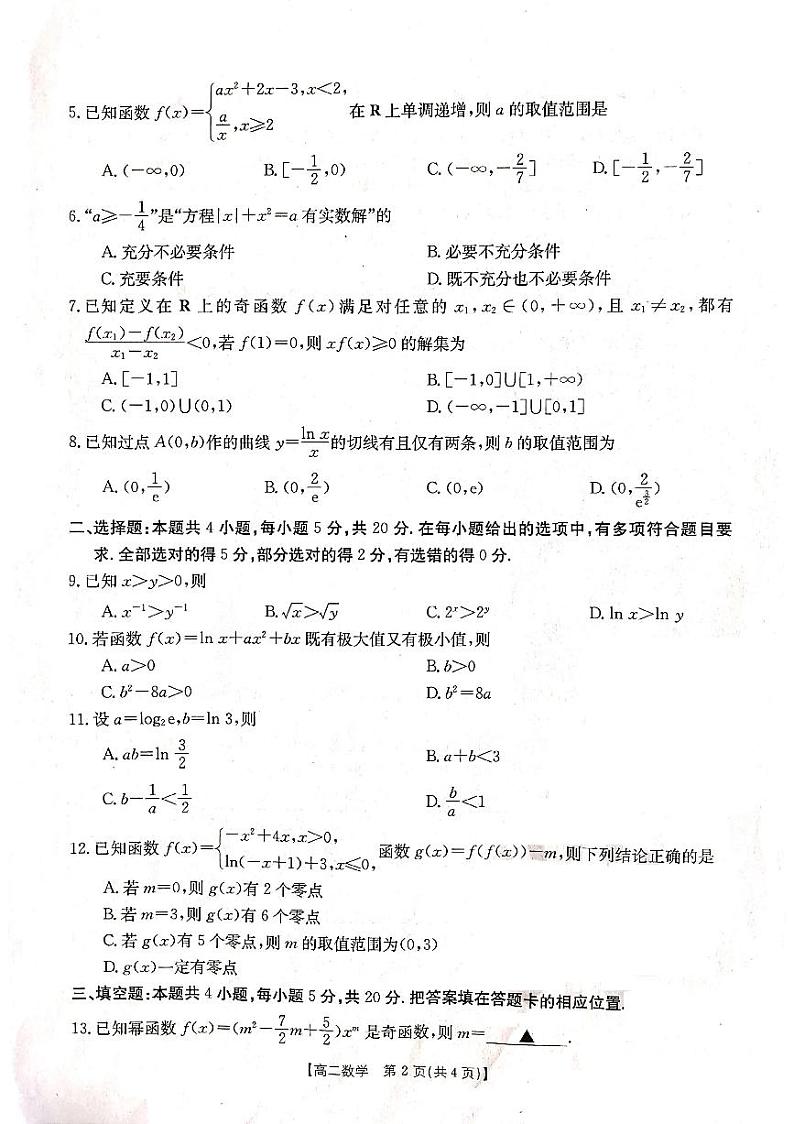 5.已知函数 f(x)={ax²+2x-3,x<2, a/x,x≥2 在 R 上单调递增,则 a 的取值范围是
A.(-∞,0) B.[-1/2,0) C.(-∞,-2/7] D.[-1/2,-2/7]
6.“a≥-1/4”是“方程|x|+x²=a 有实数解”的
A.充分不必要条件 B.必要不充分条件
C.充要条件 D.既不充分也不必要条件
7.已知定义在 R 上的奇函数 f(x)满足对任意的 x₁,x₂∈(0,+∞),且 x₁≠x₂,都有
(f(x₁)-f(x₂))/(x₁-x₂)<0,若 f(1)=0,则 xf(x)≥0 的解集为
A.[-1,1] B.[-1,0]∪[1,+∞)
C.(-1,0)∪(0,1) D.(-∞,-1]∪[0,1]
8.已知过点 A(0,b)作的曲线 y=ln x/x的切线有且仅有两条,则 b 的取值范围为
A.(0,1/e) B.(0,2/e) C.(0,e) D.(0,2/e^(3/2))
二、选择题:本题共 4 小题,每小题 5 分,共 20 分.在每小题给出的选项中,有多项符合题目要
求.全部选对的得 5 分,部分选对的得 2 分,有选错的得 0 分.
9.已知 x>y>0,则
A.x⁻¹>y⁻¹ B.√x>√y C.2ˣ>2ʸ D.ln x>ln y
10.若函数 f(x)=ln x+ax²+bx 既有极大值又有极小值,则
A.a>0 B.b>0
C.b²-8a>0 D.b²=8a
11.设 a=log₂e,b=ln 3,则
A.ab=ln 3/2 B.a+b<3
C.b-1/a<1/2 D.b/a<1
12.已知函数 f(x)={-x²+4x,x>0, ln(-x+1)+3,x≤0, 函数 g(x)=f(f(x))-m,则下列结论正确的是
A.若 m=0,则 g(x)有 2 个零点
B.若 m=3,则 g(x)有 6 个零点
C.若 g(x)有 5 个零点,则 m 的取值范围为(0,3)
D.g(x)一定有零点
三、填空题:本题共 4 小题,每小题 5 分,共 20 分.把答案填在答题卡的相应位置.
13.已知幂函数 f(x)=(m²-7/2m+5/2)xᵐ 是奇函数,则 m=▲.
【高二数学 第 2 页(共 4 页)】